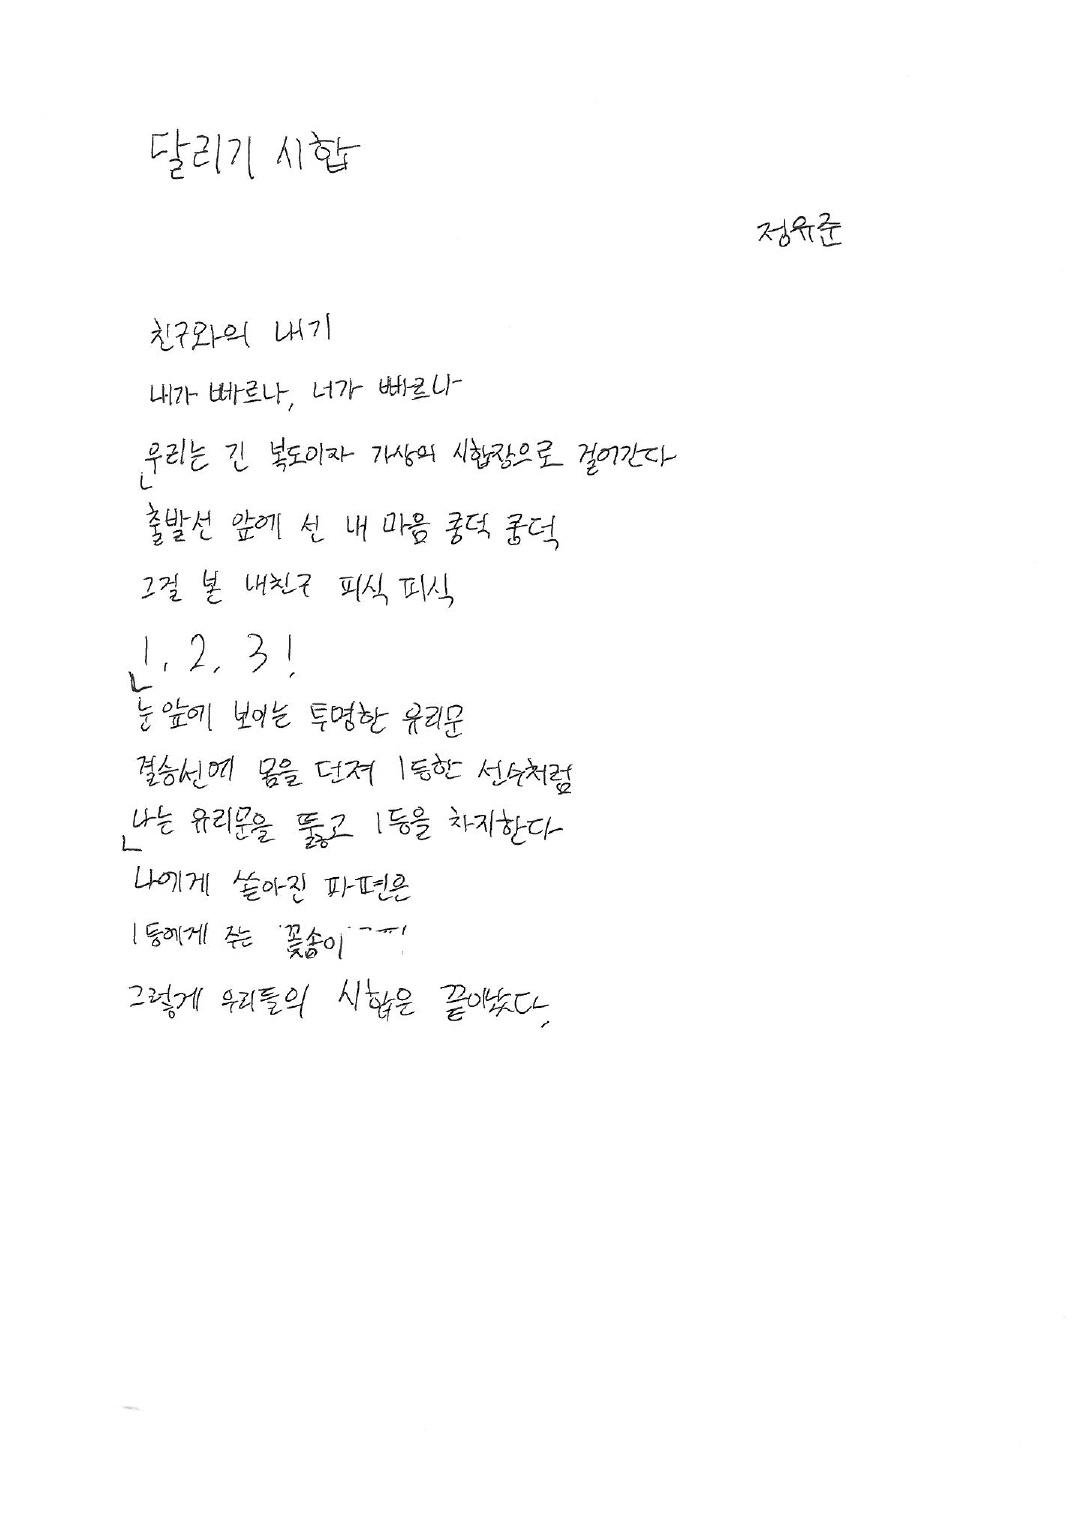 달리기 시합
정유준
친구와의 내기
내가 빠르나, 너가 빠르나
우리는 긴 복도이자 가상의 시합장으로 걸어간다
출발선 앞에 선 내 마음 쿵덕 쿵덕
그걸 본 내친구 피식 피식
1, 2, 3!
눈앞에 보이는 투명한 유리문
결승선에 몸을 던져 1등한 선수처럼
나는 유리문을 뚫고 1등을 차지한다
나에게 쏟아진 파편은
1등에게 주는 꽃송이
그렇게 우리들의 시합은 끝이났다.